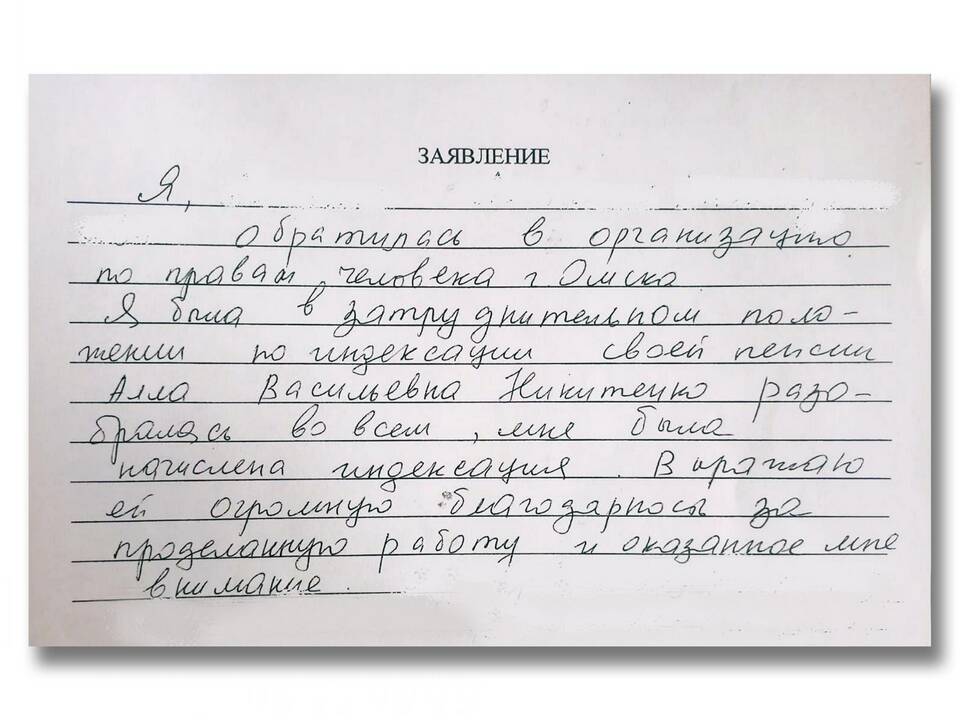 ЗАЯВЛЕНИЕ
Я,
обратилась в организацию
по правам человека г. Омска
Я была в затруднительном поло-
жении по индексации своей пенсии
Алла Васильевна Никитенко разо-
бралась во всем, мне была
начислена индексация. Выражаю
ей огромную благодарность за
проделанную работу и оказанное мне
внимание.